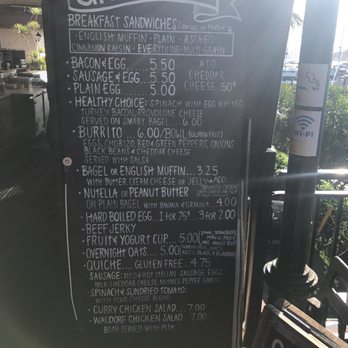 BREAKFAST SANDWICHES: BAGEL OR MUFFIN
- ENGLISH MUFFIN - PLAIN - ASIAGO -
CINNAMON RAISIN - EVERYTHING - MULTI GRAIN
• BACON & EGG 5.50 ADD
• SAUSAGE & EGG 5.50 CHEDDAR
• PLAIN EGG 5.00 CHEESE 50¢
• HEALTHY CHOICE: SPINACH WITH EGG WHITES
TURKEY BACON, PROVOLONE CHEESE
SERVED ON SMART BAGEL 6.00
• BURRITO 6.00/BOWL (GLUTEN FREE)
EGGS, CHORIZO, RED & GREEN PEPPERS, ONIONS
BLACK BEANS & CHEDDAR CHEESE
SERVED WITH SALSA
• BAGEL OR ENGLISH MUFFIN 3.25
WITH BUTTER, CREAM CHEESE OR JELLY
• NUTELLA OR PEANUT BUTTER
ON PLAIN BAGEL WITH BANANA & GRANOLA 4.00
• HARD BOILED EGG 1 FOR 75¢ 3 FOR 2.00
• BEEF JERKY
• FRUIT & YOGURT CUP 5.00
• OVERNIGHT OATS 5.00
• QUICHE GLUTEN FREE 4.75
SAUSAGE: MILD & HOT ITALIAN SAUSAGE EGGS
MILK CHEDDAR CHEESE NUTMEG PEPPER GARLIC
SPINACH & SUNDRIED TOMATO:
WITH FOUR CHEESE BLEND
• CURRY CHICKEN SALAD 7.00
• WALDORF CHICKEN SALAD 7.00
BOTH SERVED WITH PITA
Wi-Fi